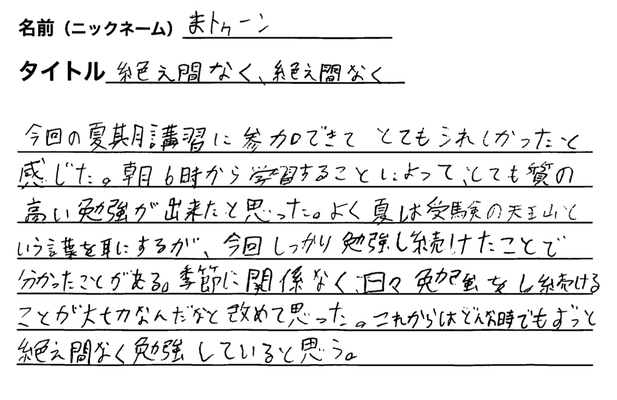 名前（ニックネーム） まトゥーン
タイトル 絶え間なく、絶え間なく
今回の夏期講習に参加できてとてもうれしかったと
感じた。朝6時から学習することによって、とても質の
高い勉強が出来たと思った。よく夏は受験の天王山と
いう言葉を耳にするが、今回しっかり勉強し続けたことで
分かったことがある。季節に関係なく、日々勉強をし続ける
ことが大切なんだなと改めて思った。これからはどんな時でもずっと
絶え間なく勉強していると思う。